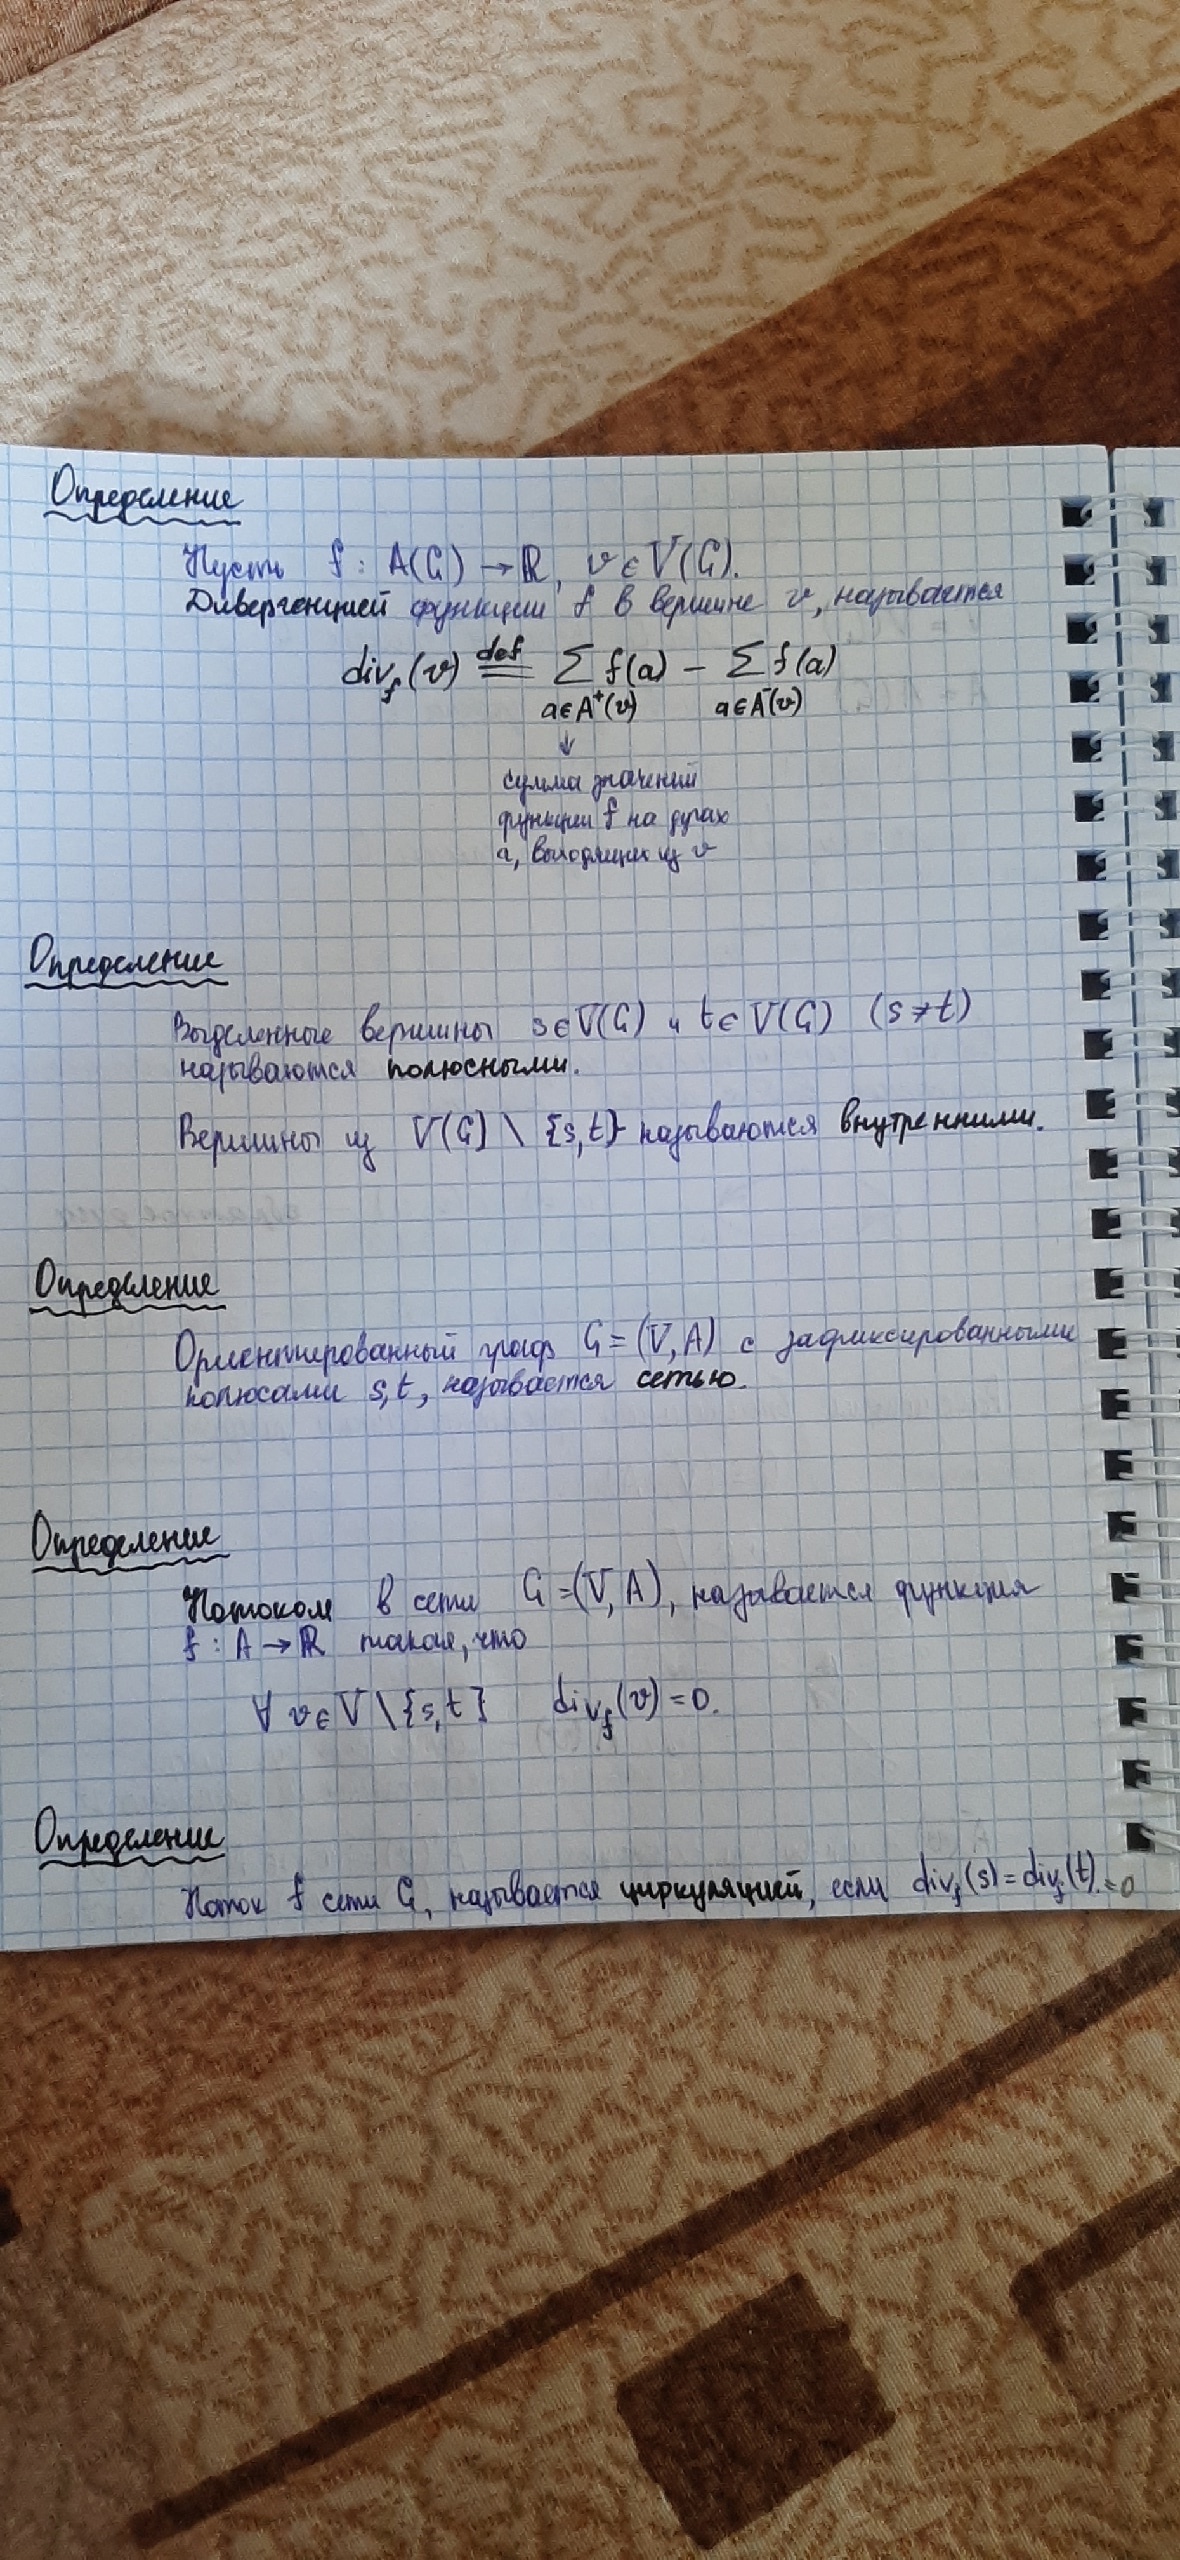 Определение
Пусть f : A(G) → ℝ, v ∈ V(G).
Дивергенцией функции f в вершине v, называется
div_f(v) def== ∑ f(a) − ∑ f(a)
a∈A⁺(v) a∈A⁻(v)
↓
сумма значений
функции f на дугах
a, выходящих из v
Определение
Выделенные вершины s∈V(G) и t∈V(G) (s≠t)
называются полюсными.
Вершины из V(G) \ {s,t} называются внутренними.
Определение
Ориентированный граф G=(V,A) с зафиксированными
полюсами s,t, называется сетью.
Определение
Потоком в сети G=(V,A), называется функция
f : A → ℝ такая, что
∀ v∈V\{s,t} div_f(v)=0.
Определение
Поток f сети G, называется циркуляцией, если div_f(s)=div_f(t).=0